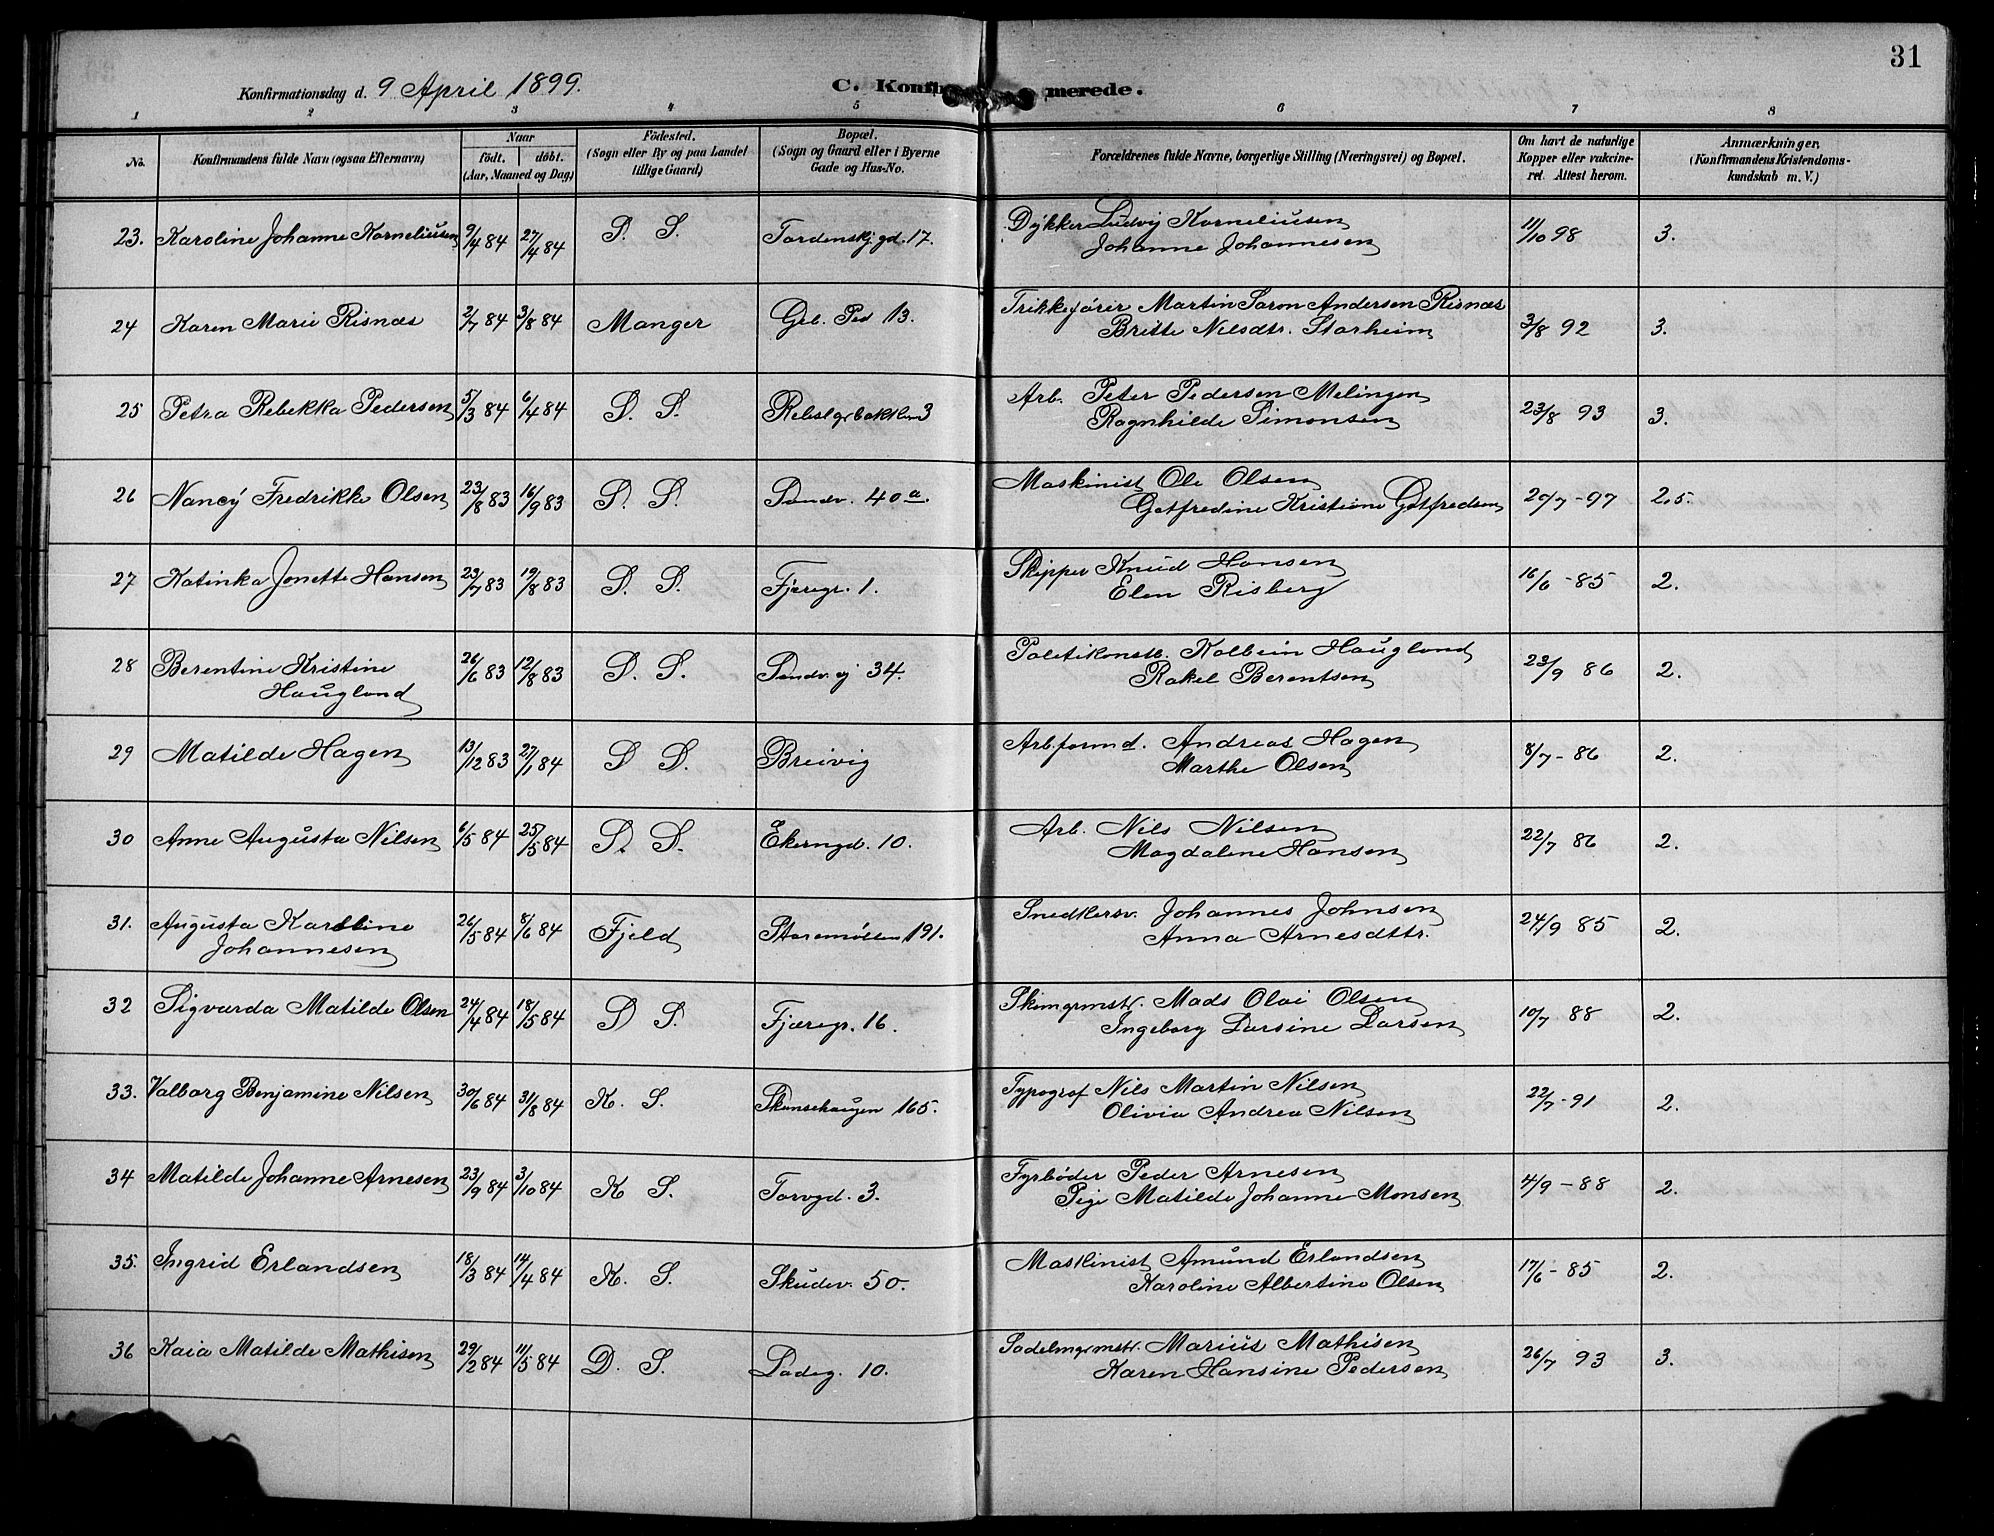 31
Konfirmationsdag d. 9 April 1899.
C. Konfirmerede.
1 2 3 4 5 6 7 8
No. Konfirmandens fulde Navn (ogsaa Efternavn) Naar født. døbt. (Aar, Maaned og Dag) Fødested. (Sogn eller By og paa Landet tillige Gaard) Bopæl. (Sogn og Gaard eller i Byerne Gade og Hus-No. Forældrenes fulde Navne, borgerlige Stilling (Næringsvei) og Bopæl. Om havt de naturlige Kopper eller vakcineret. Attest herom. Anmærkninger. (Konfirmandens Kristendomskundskab m. V.)
23. Karoline Johanne Korneliusen 9/4 84 27/4 84 S. S. Tordenskj.gd. 17. Dykker Ludvig Korneliusen 11/10 98 3.
Johanne Johannesen
24 Karen Marie Risnæs 2/7 84 3/8 84 Manger Grl. Ped 13. Trikkefører Martin Saron Andersen Risnæs 3/8 92 3.
Britte Nilsdtr. Storheim
25 Petra Rebekka Pedersen 5/3 84 6/4 84 S. S. Rebslgrbakken 3 Arb. Peter Pedersen Melingen 23/8 93 3.
Ragnhilde Simonsen
26 Nancy Fredrikke Olsen 23/8 83 16/9 83 S. S. Sandv. 40 a. Maskinist Ole Olsen 20/7 - 97 2,5.
Gotfredine Kristiane Gotfredsen
27 Katinka Jonette Hansen 23/7 83 19/8 83 S. S. Fjæregr. 1. Skipper Knud Hansen 16/6 - 85 2.
Elen Risberg
28 Berentine Kristine 26/6 83 12/8 83 S. S. Sandv.ej 34. Politikonstb. Kolbein Haugland 23/9 86 2.
Haugland Rakel Berentsen
29 Matilde Hagen 13/12 83 27/1 84 S S. Breivig Arb.formd. Andreas Hagen 8/7 - 86 2.
Marthe Olsen
30 Anne Augusta Nilsen 6/5 84 25/5 84 S. S. Ekerngd. 10. Arb. Nils Nilsen 22/7 86 2.
Magdalene Hansen
31. Augusta Karoline 26/5 84 8/6 84 Fjeld Storemøllen 191. Snedkersv. Johannes Johnsen 24/9 85 2.
Johannesen Anna Arnesdttr.
32 Sigvarda Matilde Olsen 24/4 84 18/5 84 S S. Fjæregr. 16. Skomgrmstr. Mads Olai Olsen 10/7 88 2.
Ingeborg Larsine Larsen
33. Valborg Benjamine Nilsen 30/6 84 31/8 84 K. S. Skansehaugen 165. Typograf Nils Martin Nilsen 22/7 - 91 2.
Olivia Andrea Nilsen
34 Matilde Johanne Arnesen 23/9 84 3/10 84 K S. Torvgd. 3. Fyrbøder Peder Arnesen 4/9 - 88 2.
Pige Matilde Johanne Monsen
35. Ingrid Erlandsen 18/3 84 14/4 84 K. S. Skudev. 50. Maskinist Amund Erlandsen 17/6 - 85 2.
Karoline Albertine Olsen
36 Kaia Matilde Mathisen 29/2 84 11/5 84 D. S. Ladeg. 10. Sadelmgrmstr. Marius Mathisen 26/7 93 3.
Karen Hansine Pedersen